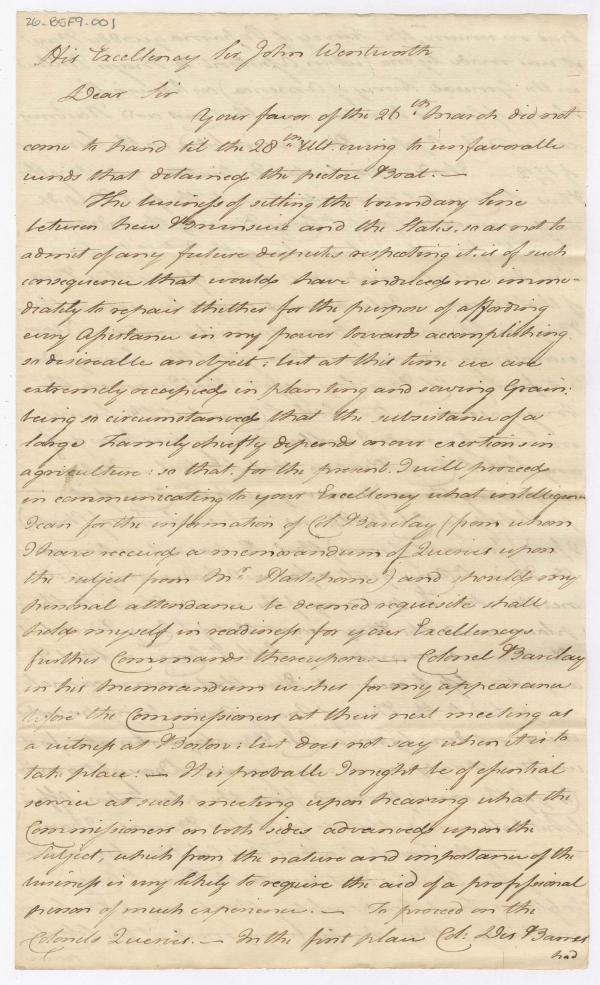 26-BSF9-001
His Excellency Sir John Wentworth
Dear Sir
Your favor of the 26th March did not
come to hand til the 28th Ult. owing to unfavorable
winds that detained the pictou Boat. —
The business of setling the boundary line
between New Brunswic and the States, so as not to
admit of any future disputes respecting it, is of such
consequence that would have induced me imme-
diately to repair thether for the purpose of affording
every Assistance in my power towards accomplishing
so desireable an object; but at this time we are
extremely occupied in planting and sowing Grain;
being so circumstanced that the subsistance of a
large Family chiefly depends on our exertions in
agriculture: so that, for the present, I will proceed
in communicating to your Excellency what intelligence
I can for the information of Col. Barclay (from whom
I have received a memorandum of Queries upon
the subject from Mr. Hartshorne) and should my
personal attendance be deemed requisite shall
hold myself in readiness for your Excellencys
further Commands thereupon. — Colonel Barclay
in his memorandum wishes for my appearance
before the Commissioners at their next meeting as
a witness at Boston: but does not say when it is to
take place: — It is probable I might be of essential
service at such meeting upon hearing what the
Commissioners on both sides advanced upon the
Subject, which from the nature and importance of the
business is very likely to require the aid of a professional
person of much experience. — To proceed on the
Colonels Queries. — In the first place Col: Des Barres
had